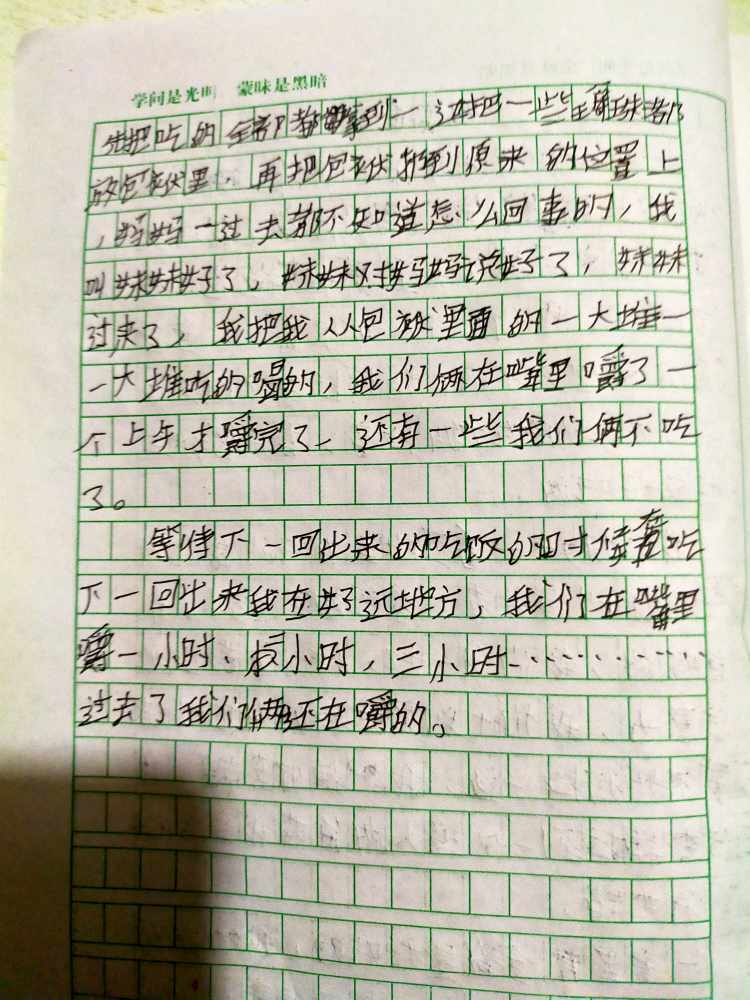 学问是光明 蒙昧是黑暗
先把吃的全部都拿到一边把一些
放包衣伏里，再把包衣伏挪到原来的位置上
，妈妈一过去都不知道怎么回事的，我
叫妹妹好了，妹妹对妈妈说好了，妹妹
过来了，我把我从包被里面的一大堆一
一大堆吃的喝的，我们俩在嘴里嚼了一
个上午才嚼完了一还有一些我们俩不吃
了。
等待下一回出来的吃饭的时候在吃
下一回出来我在好远地方，我们在嘴里
嚼一小时、小时，三小时…………
过去了我们俩还在嚼的。